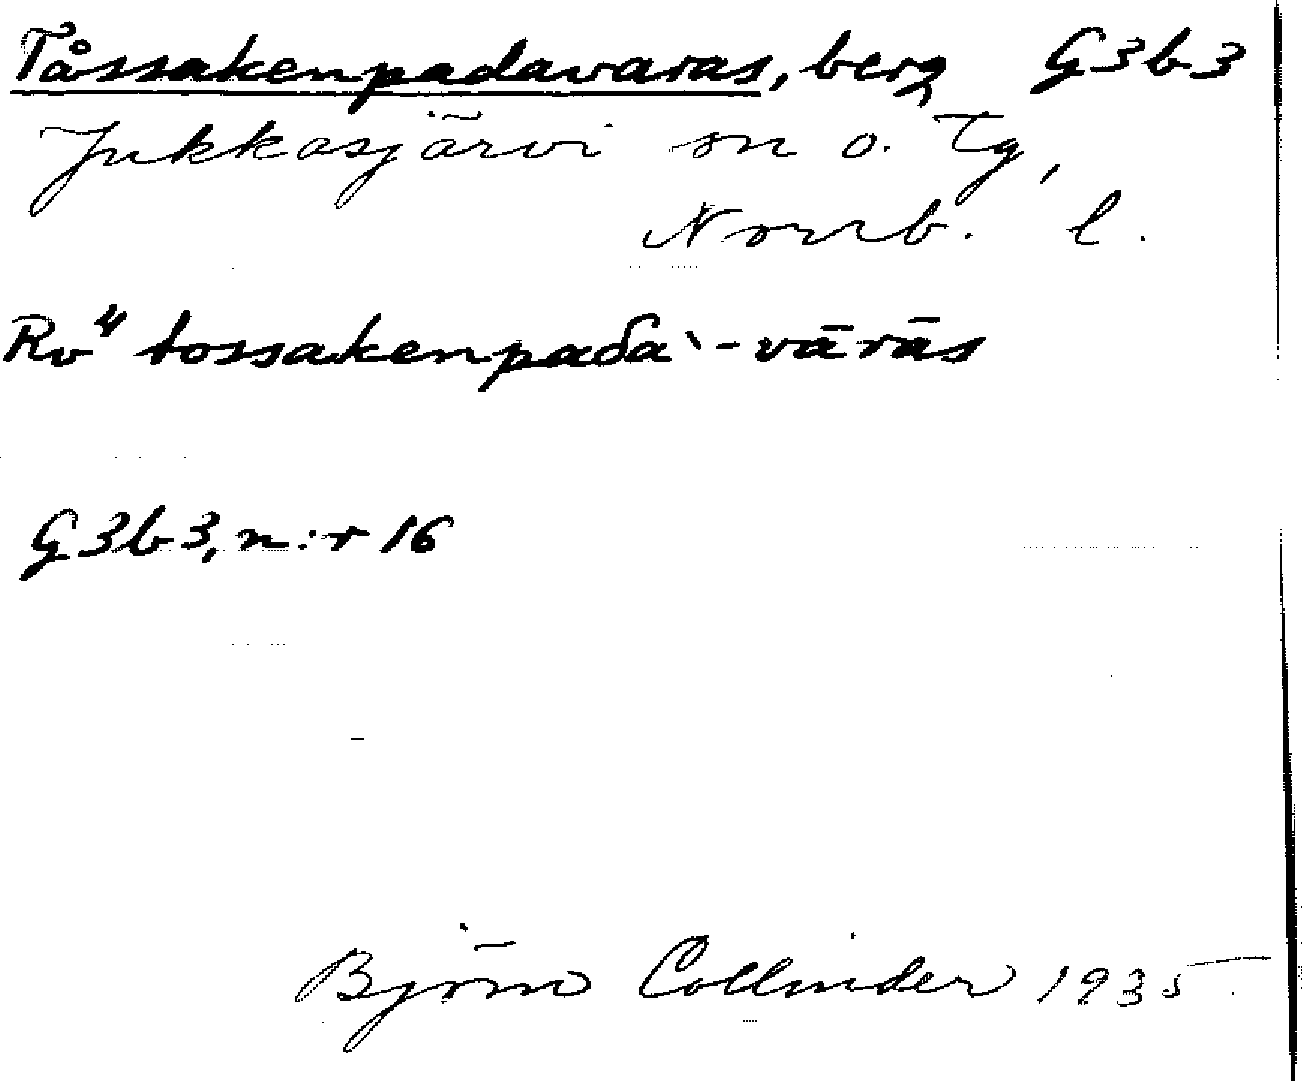 Tåssakenpadavaras, berg G3b3
Jukkasjärvi sn o. tg,
Norrb. l.
Rv" tossakenpaδa`-vārās
G3b3, n:r 16
Björn Collinder 1935